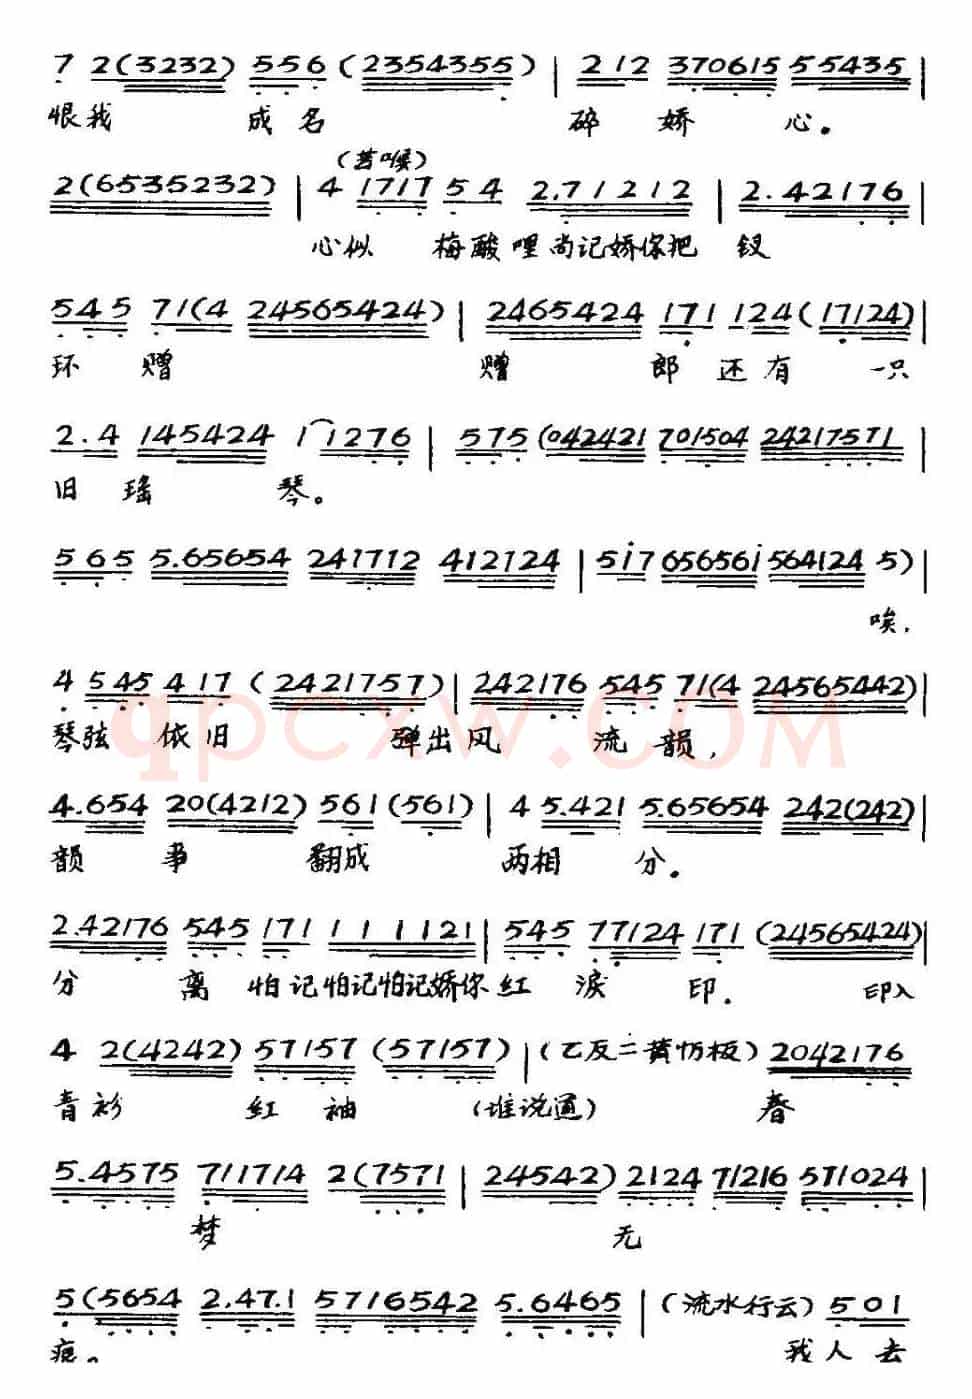 7 2(3232) 556 (2354355) | 212 370615 55435 |
恨我 成名 碎娇心。
(苦喉)
2(6535232) | 4 1717 54 2.71212 | 2.42176 |
心似 梅酸哩尚记娇你把 钗
545 71(4 24565424) | 2465424 171 124(17124) |
环 赠 赠 郎还有 一只
2.4 145424 1 1276 | 575 (042421 701504 24217571
旧瑶 琴。
565 5.65654 241712 412124 | 5i7 65656i 564124 5) |
唉,
4 545 417 (2421757) | 242176 545 71(4 24565442) |
琴弦 依旧 弹出风 流韵,
qpcxw.COM
4.654 20(4212) 561(561) | 4 5.421 5.65654 242(242) |
韵事 翻成 两相分。
2.42176 545 171 1 1 1 121 | 545 77124 171 (24565424) |
分 离 怕记怕记怕记娇你红 泪 印. 印入
4 2(4242) 57157 (57157) | (乙反二黄忉板) 2042176
青衫 红袖 (谁说通) 春
5.4575 711714 2(7571 | 24542) 2124 71216 571024 |
梦 无
5(5654 2.47.1 5716542 5.6465 | (流水行云) 501
痕。 我人去